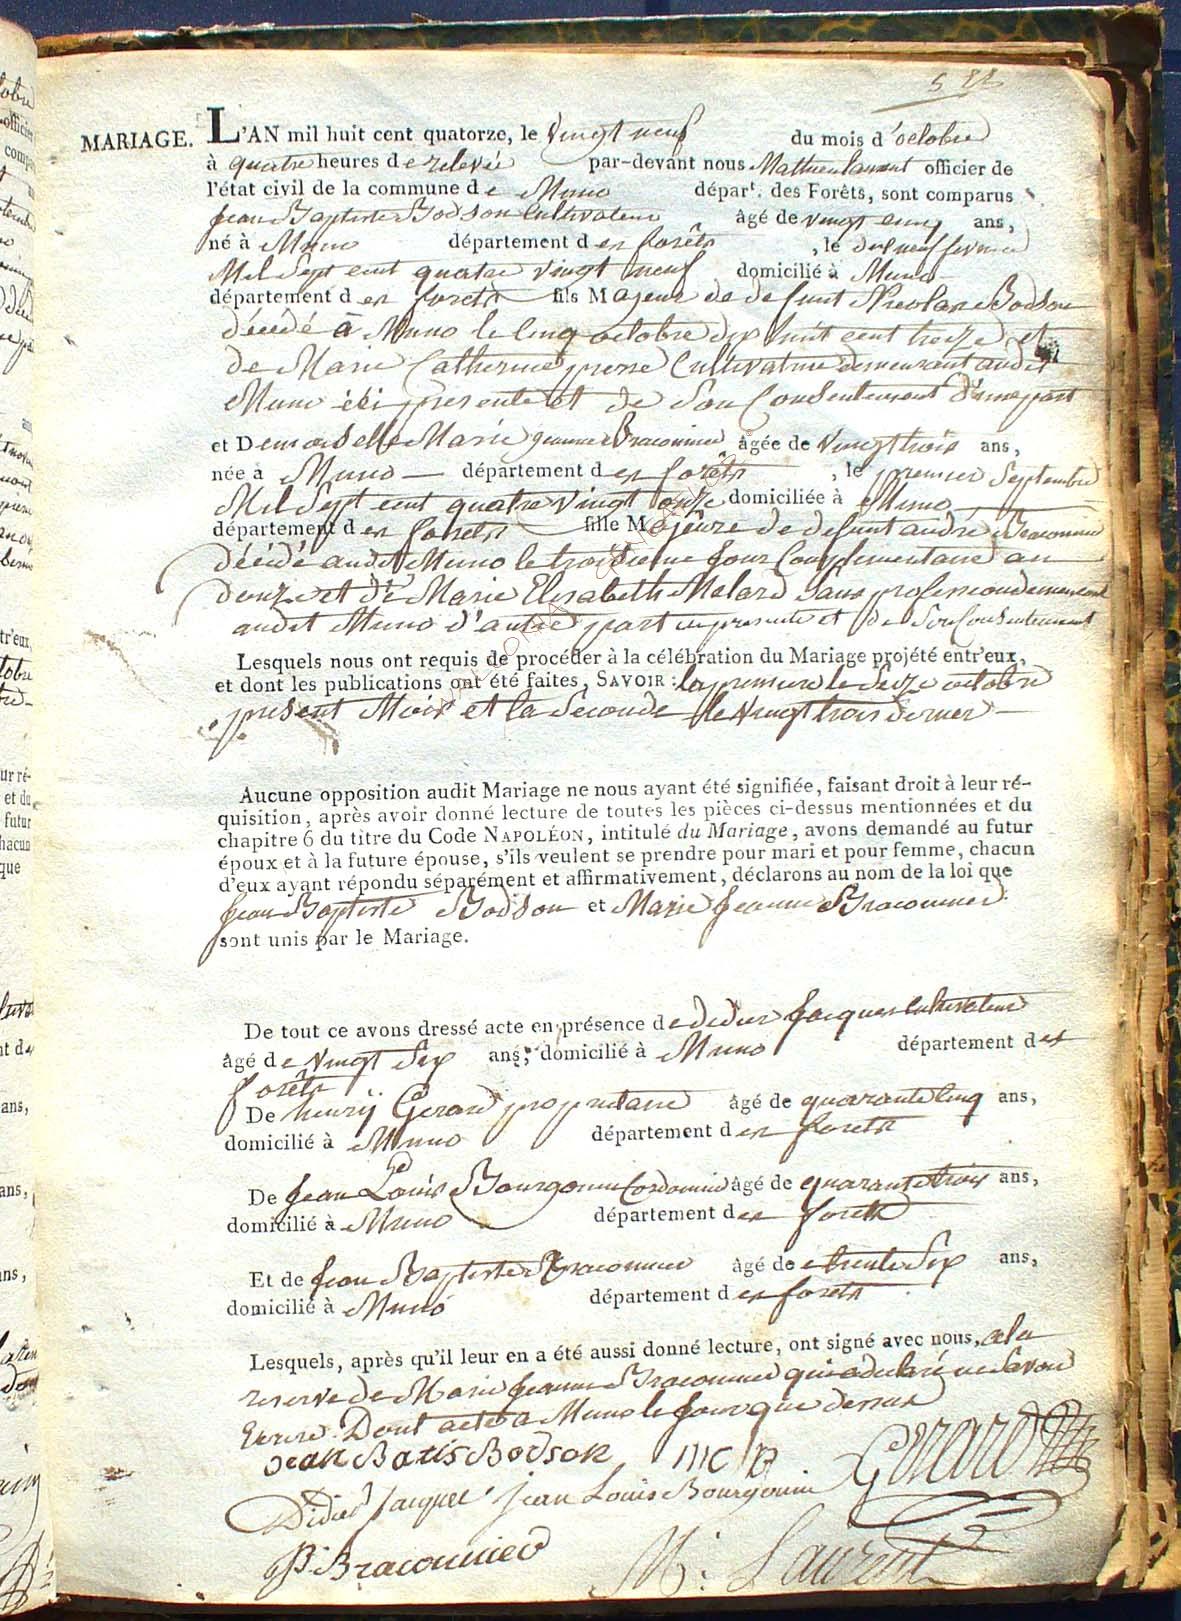 MARIAGE. L'AN mil huit cent quatorze, le vingt neuf du mois d'octobre
à quatre heures de relevée par-devant nous Mathieu Laurent officier de
l'état civil de la commune de Muno départ. des Forêts, sont comparus
Jean Baptiste Bodson Cultivateur âgé de vingt cinq ans,
né à Muno département des forêts, le dix neuf fevrier
Mil Sept cent quatre vingt neuf domicilié à Muno
département des forets fils Majeur de defunt Nicolas Bodson
décédé à Muno le cinq octobre dix huit cent treize et
de Marie Catherine pierre Cultivatrice demeurant audit
Muno ici presente et de Son Consentement d'une part
et Demoiselle Marie jeanne Braconnier âgée de vingt trois ans,
née à Muno département des forêts, le premier Septembre
Mil Sept cent quatre vingt onze domiciliée à Muno
département des forets fille Majeure de defunt andré Braconnier
décédé audit Muno le troisieme jour Complimentaire an
douze et de Marie Elisabeth Malard Sans profession demeurant
audit Muno d'autre part ici presente et de Son Consentement
Lesquels nous ont requis de procéder à la célébration du Mariage projété entr'eux,
et dont les publications ont été faites, SAVOIR : la premiere le Seize octobre
present Mois et la Seconde le vingt trois dernier
Aucune opposition audit Mariage ne nous ayant été signifiée, faisant droit à leur ré-
quisition, après avoir donné lecture de toutes les pièces ci-dessus mentionnées et du
chapitre 6 du titre du Code NAPOLÉON, intitulé du Mariage, avons demandé au futur
époux et à la future épouse, s'ils veulent se prendre pour mari et pour femme, chacun
d'eux ayant répondu séparément et affirmativement, déclarons au nom de la loi que
Jean Baptiste Bodson et Marie Jeanne Braconnier
sont unis par le Mariage.
De tout ce avons dressé acte en présence de didier Jacques cultivateur
âgé de vingt Six ans, domicilié à Muno département des
forêts
De henry Gerard propriétaire âgé de quarante cinq ans,
domicilié à Muno département des forets
De Jean Louis Bourgonnie Cordonnier âgé de quarante trois ans,
domicilié à Muno département des forets
Et de Jean Baptiste Braconnier âgé de trente Six ans,
domicilié à Muno département des forets
Lesquels, après qu'il leur en a été aussi donné lecture, ont signé avec nous, a la
reserve de Marie Jeanne Braconnier qui a declaré ne Savoir
Ecrire. Dont acte a Muno le Jour que dessus
Jean Batis Bodson MCP Gerard
Didier Jacque Jean Louis Bourgonnie
Braconnier M. Laurent